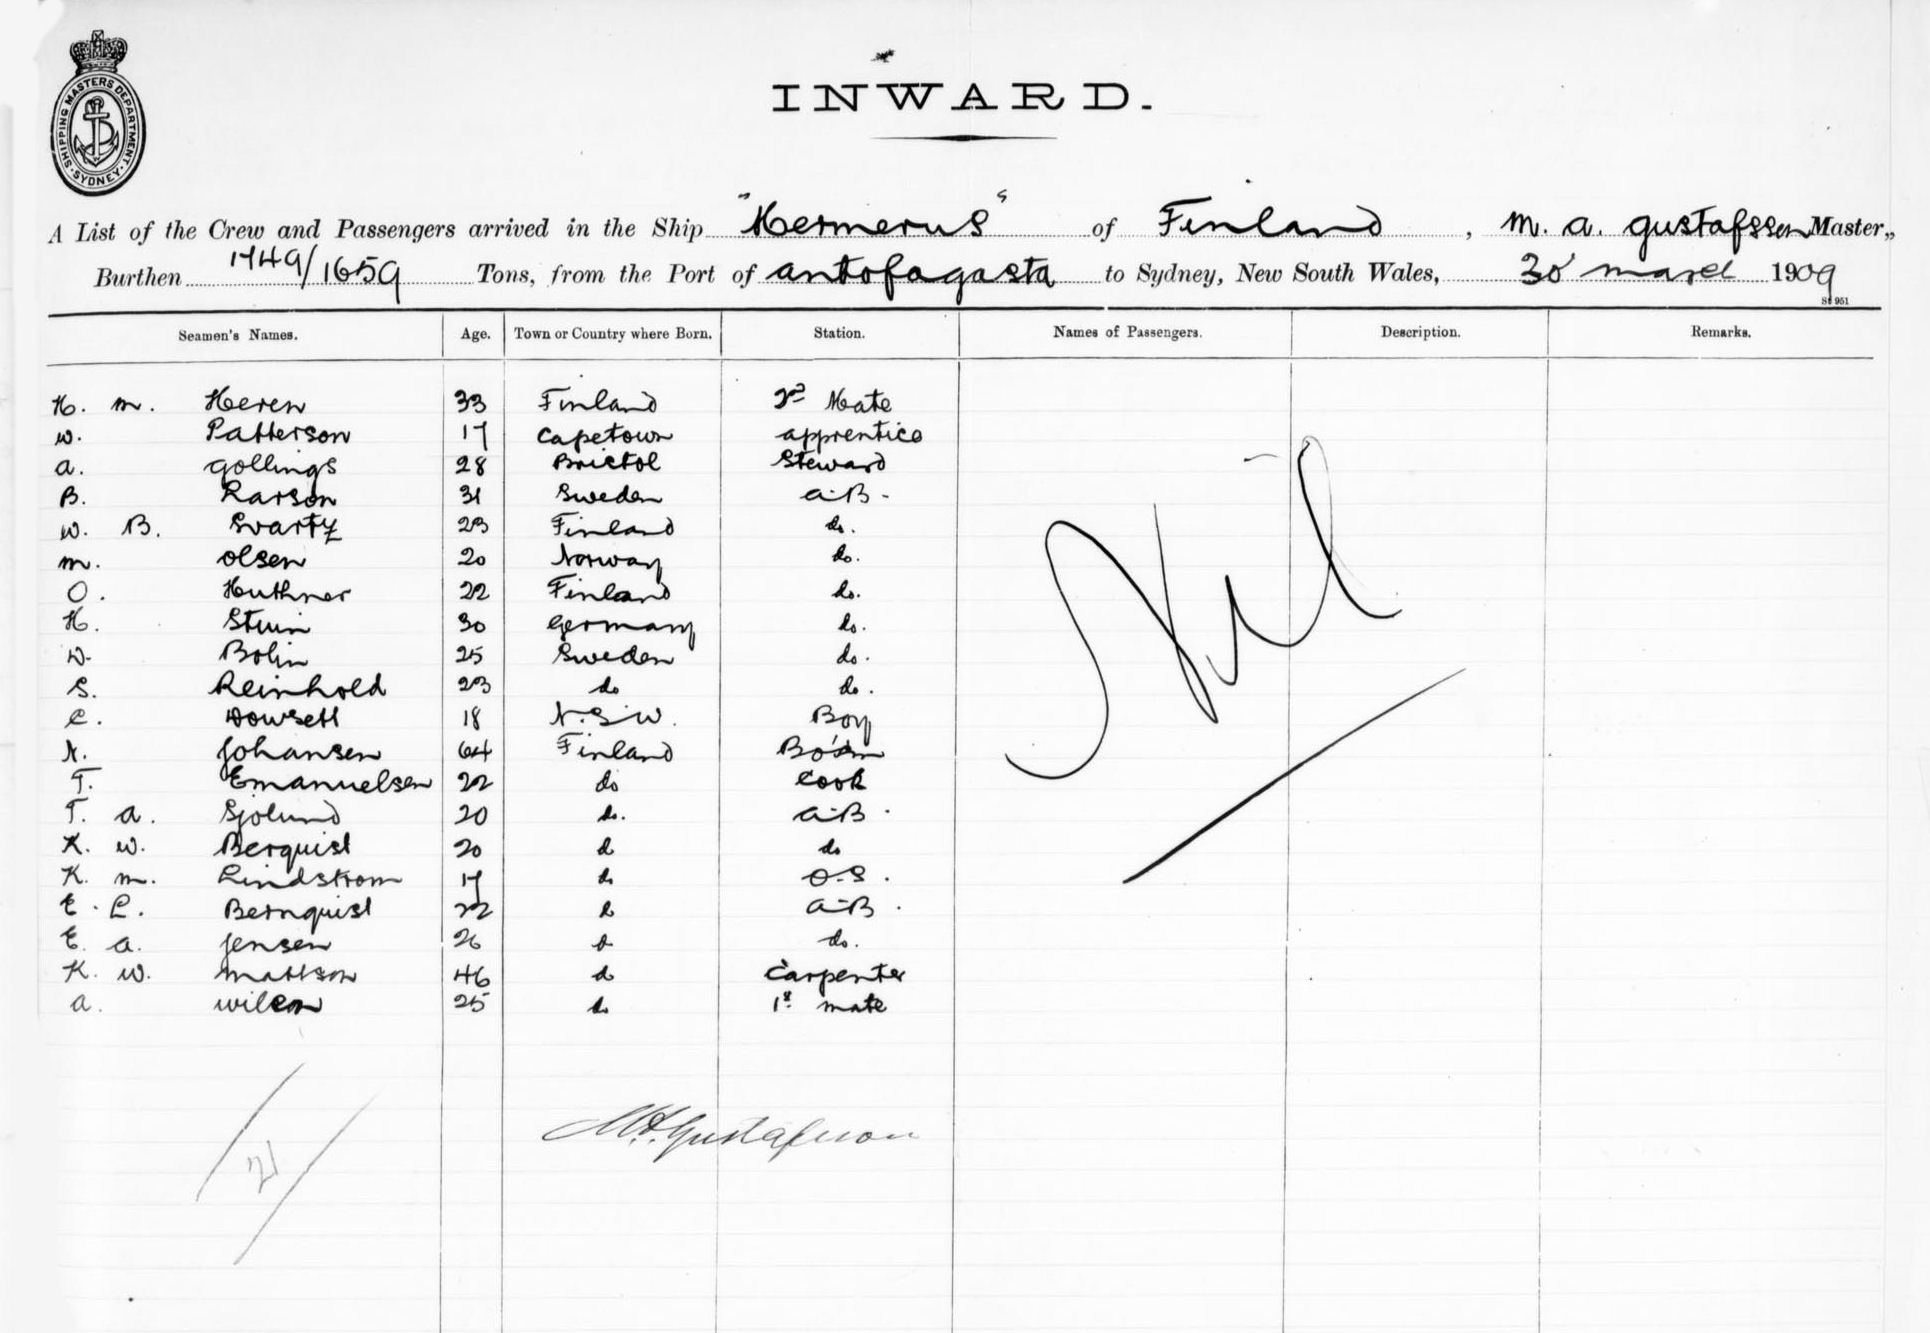 SHIPPING MASTERS DEPARTMENT
SYDNEY
INWARD.
A List of the Crew and Passengers arrived in the Ship "Hermerus" of Finland, M. A. Gustafssen Master,
Burthen 1749/1659 Tons, from the Port of Antofagasta to Sydney, New South Wales, 30 March 1909
St 951
Seamen's Names. Age. Town or Country where Born. Station. Names of Passengers. Description. Remarks.
H. M. Heren 33 Finland 2nd Mate
W. Patterson 17 Capetown Apprentice
A. Gollings 28 Bristol Steward
B. Larson 31 Sweden A-B-
W. B. Svartz 23 Finland do.
M. Olsen 20 Norway do.
O. Huthner 22 Finland do.
H. Stuin 30 Germany do.
W. Bolin 25 Sweden do.
S. Reinhold 23 do do.
C. Dowsett 18 N.S.W. Boy
N. Johansen 64 Finland Bo'sn
T. Emanuelsen 22 do Cook
T. A. Sjolund 20 do. A-B-
K. W. Berquist 20 do do
K. M. Lindstrom 17 do O.S.
E. L. Bernquist 22 do A-B.
E. A. Jensen 26 do do.
K. W. Mattson 46 do Carpenter
A. Wilson 25 do 1st Mate
Nil
M.A. Gustafsson
21